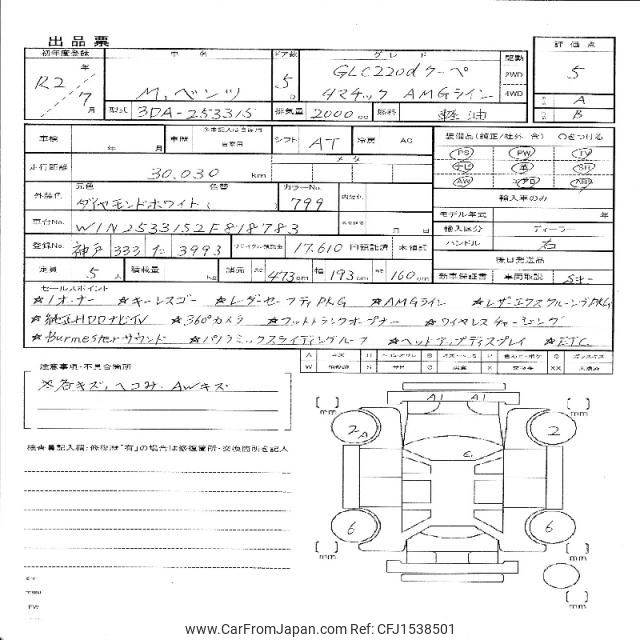 出品票
初年度登録 車名 ドア数 グレード 駆動 評価点
R2年 7月 M,ベンツ 5D GLC220d クーペ 2WD 5
4マチック AMGライン 4WD A
型式 3DA-253315 排気量 2000cc 燃料 軽油 B
車検 年 月 車歴 シフト AT 冷房 AC 装備品(純正/社外 含) ○をつける
走行距離 30,030 km メータ PS PW TV
ナビ 革 SR
AW ABG
外装色 元色 色替 カラーNo. 輸入車のみ
ダイヤモンドホワイト ( ) 799 モデル年式 年
車台No. W1N2533152F818783 月 日 輸入区分 ディーラー
登録No. 神戸 333 3993 リサイクル預託金 17,610 円預託済 未預託 ハンドル 右
後日発送品
定員 5人 積載量 kg 諸元 473cm 幅 193cm 160cm 新車保証書 車両取説
セールスポイント
☆1オーナー ☆キーレスゴー ☆レーダーセーフティPKG ☆AMGライン ☆レザーエクスクルーシブPKG
☆純正HDDナビTV ☆360°カメラ ☆フットトランクオープナー ☆ワイヤレスチャージング
☆Burmesterサウンド ☆パノラミックスライディングルーフ ☆ヘッドアップディスプレイ ☆ETC
注意事項・不具合箇所
※各キズ、ヘコみ、AWキズ
検査員記入欄:修復歴"有"の場合は修復箇所・交換箇所を記入
A1 A1
2 A 2
6 6
[ ]mm [ ]mm
[ ]mm [ ]mm
[ ]mm
www.CarFromJapan.com Ref: CFJ1538501